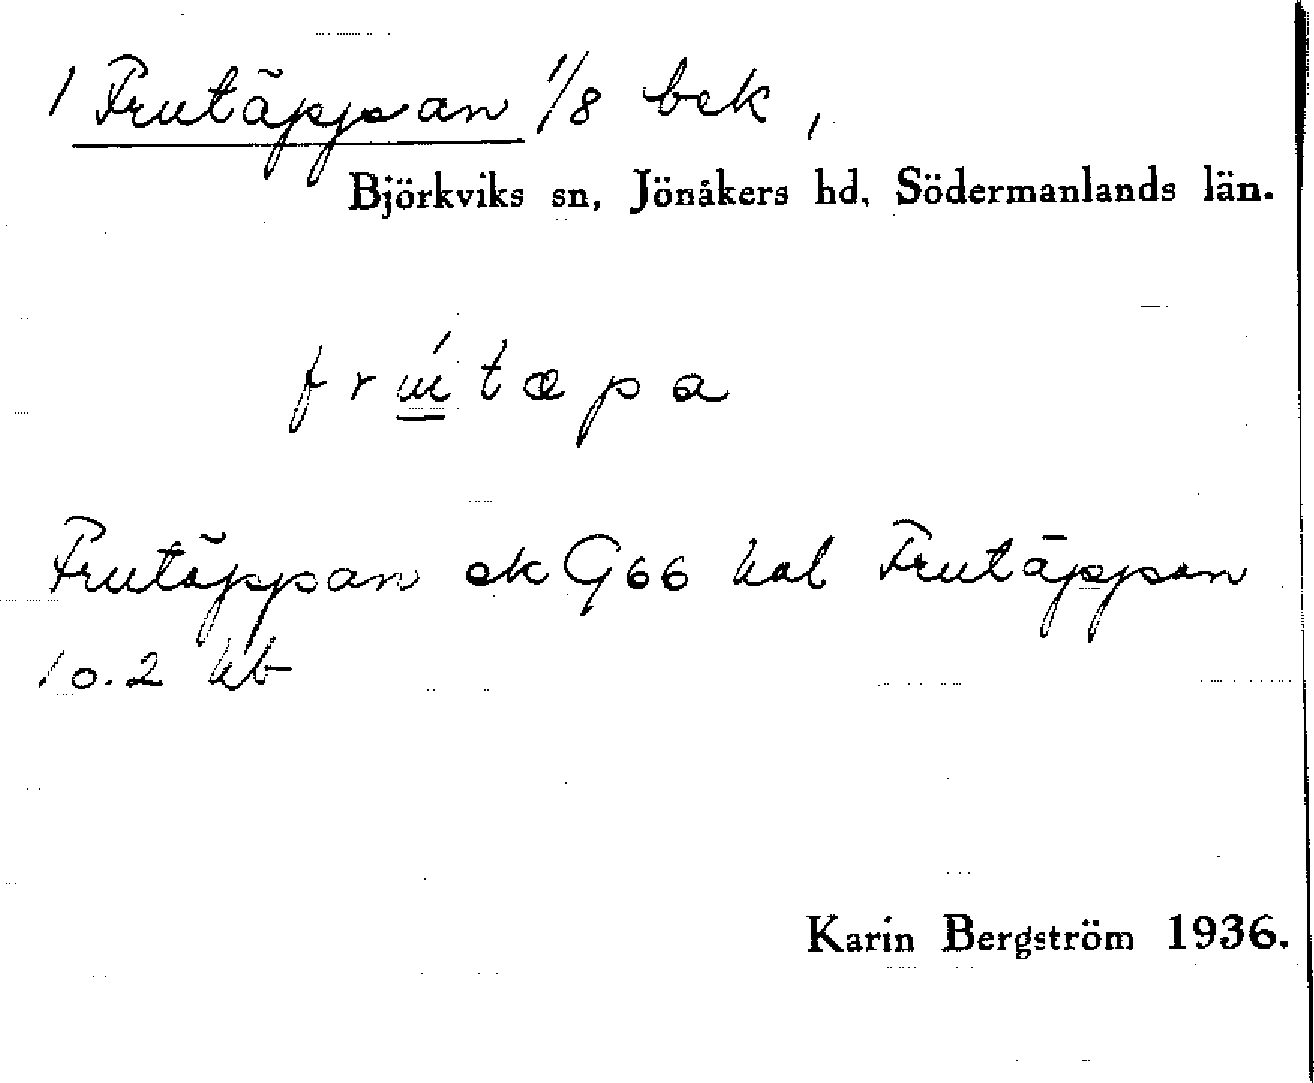 1 Frutäppan 1/8 bek,
Björkviks sn, Jönåkers hd, Södermanlands län.
frútæpa
Frutäppan ek G66 hal Frutäppan
1 o. 2 kb
Karin Bergström 1936.